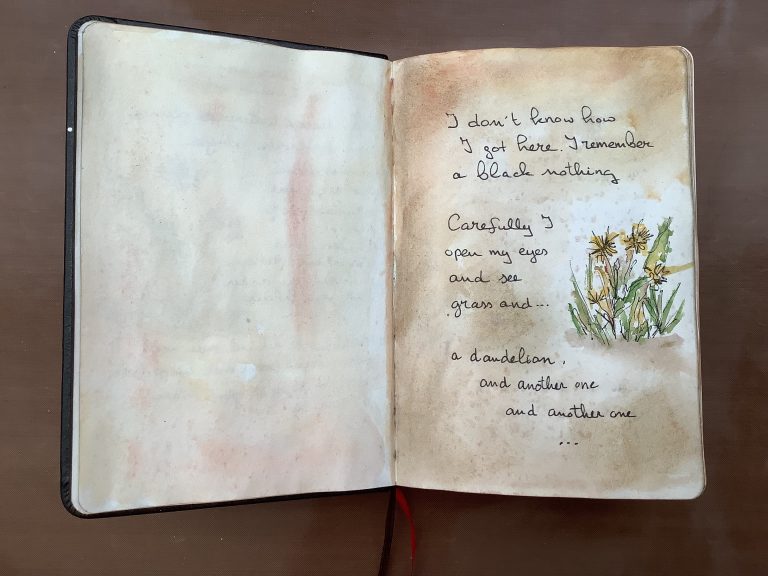 I don't know how
I got here. I remember
a black nothing
Carefully I
open my eyes
and see
grass and...
a dandelion,
and another one
and another one
...